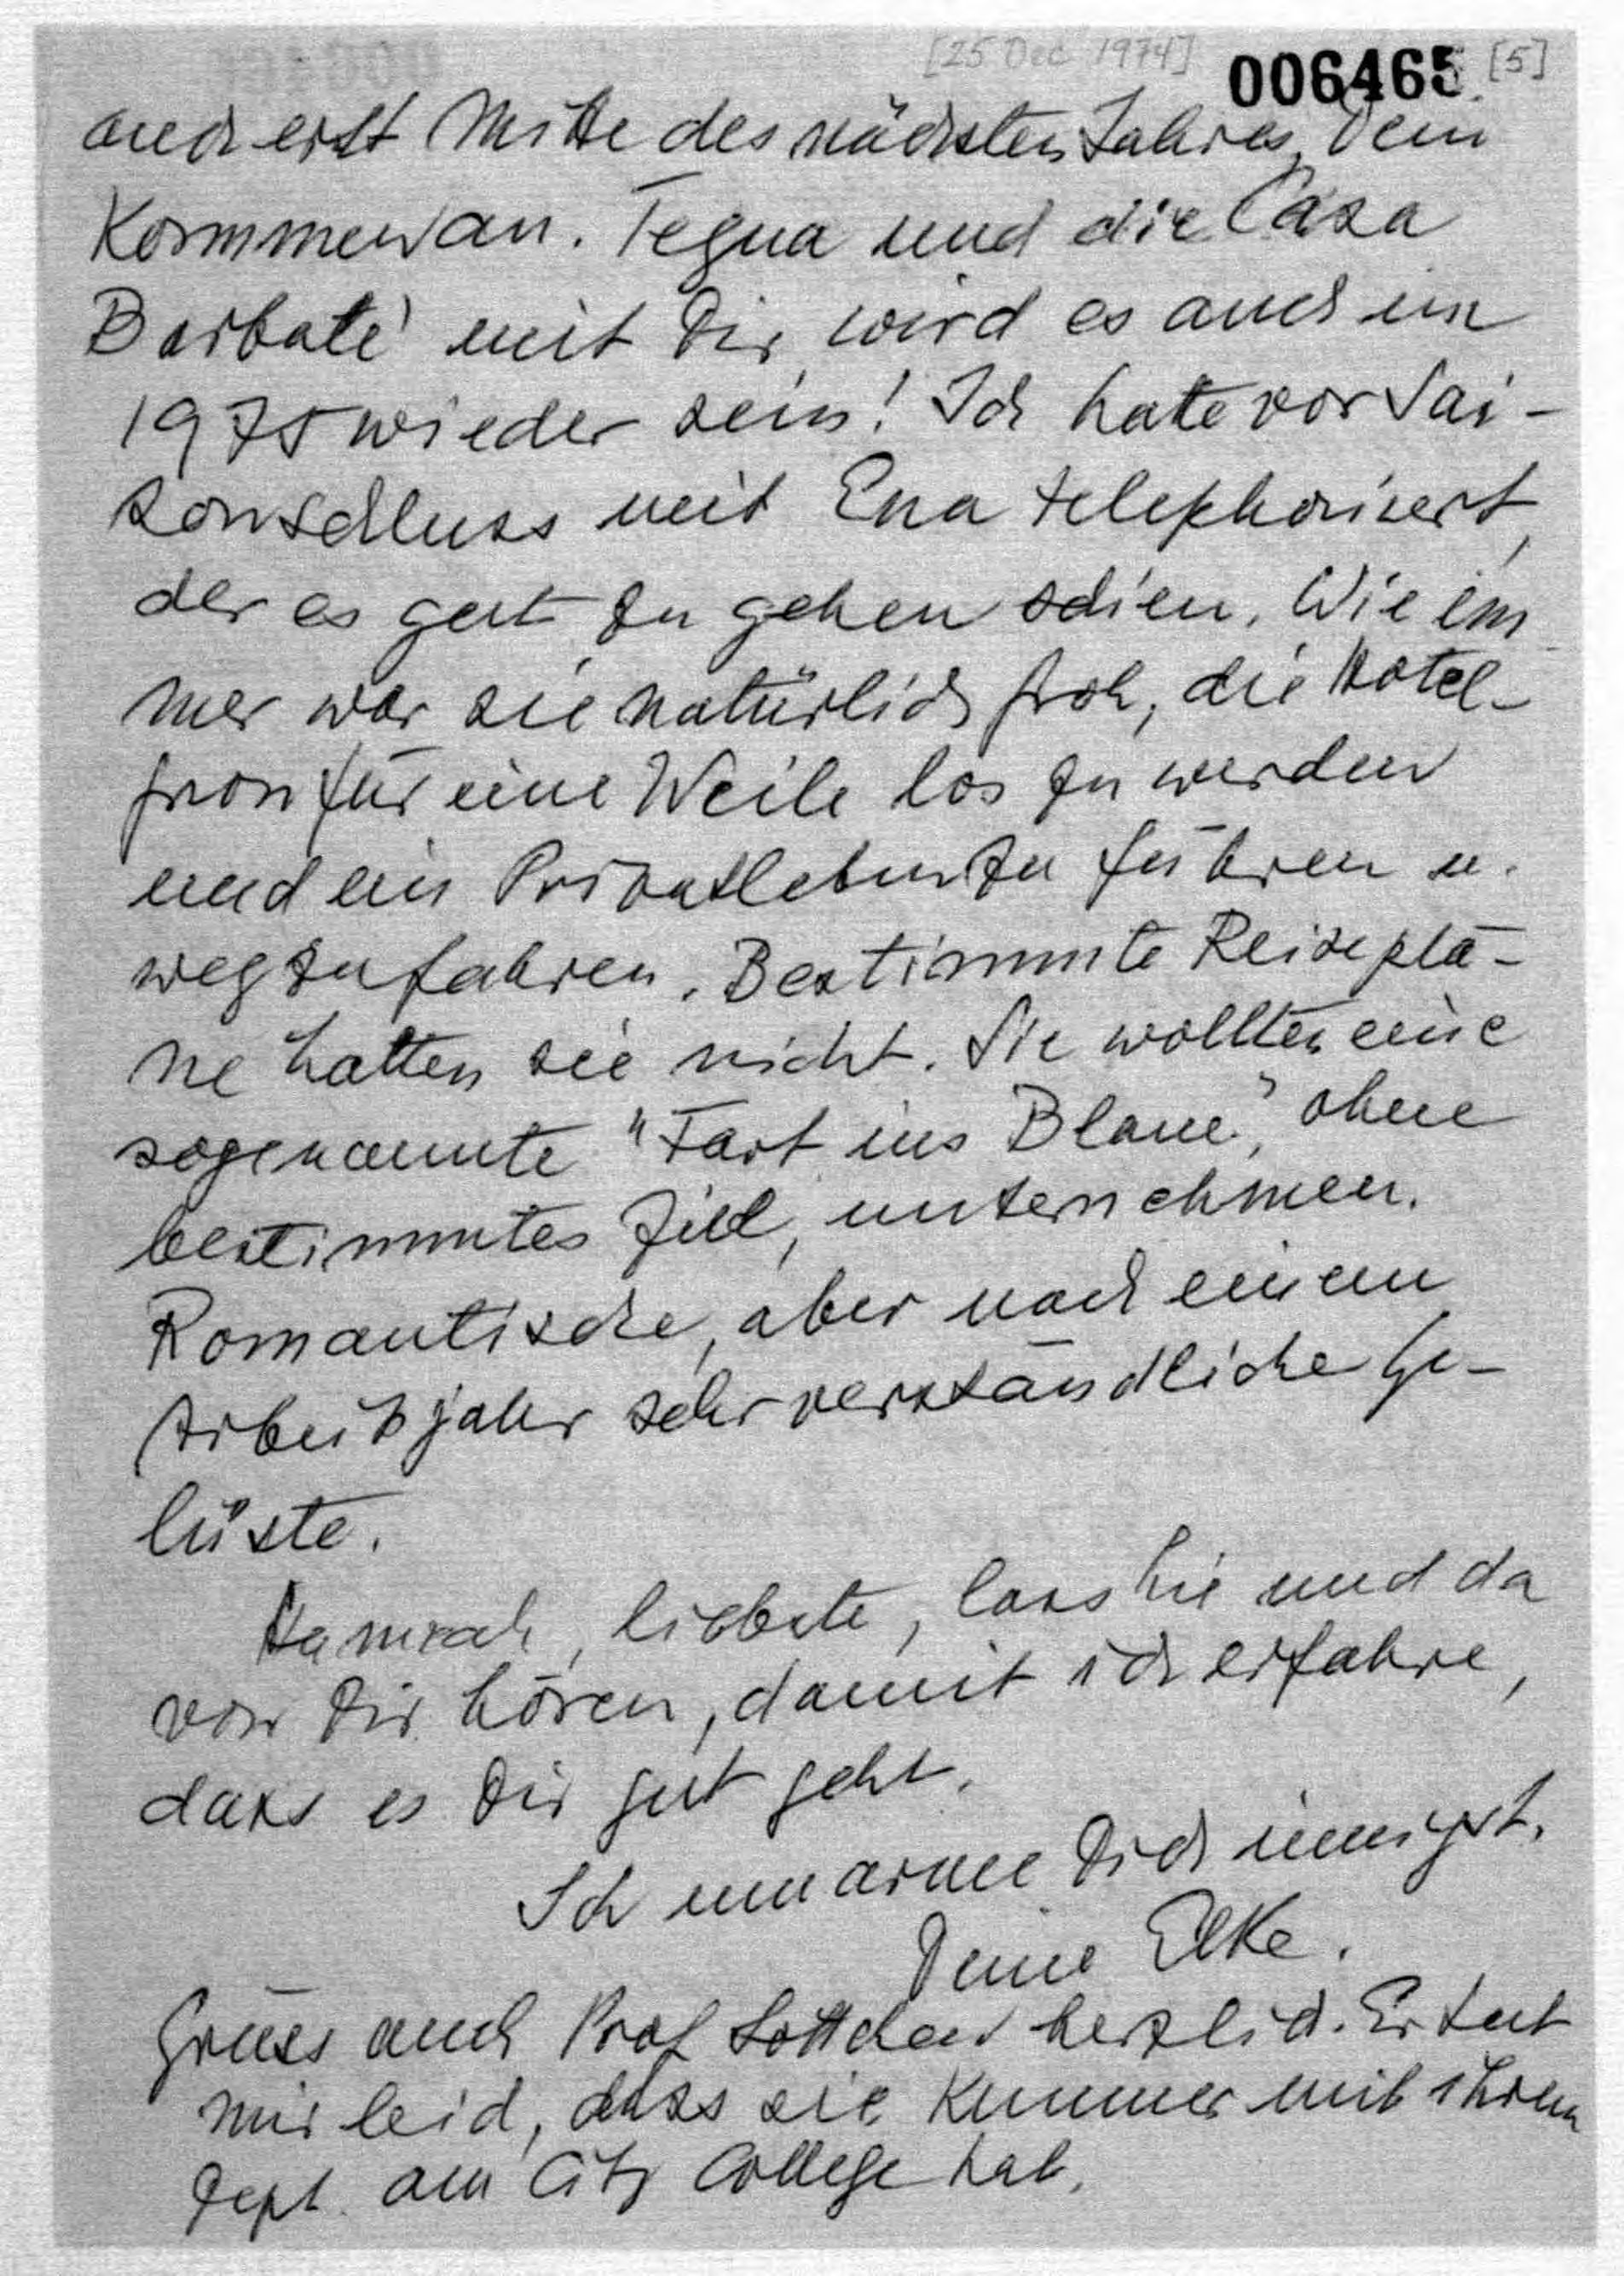 [25 Dec 1974] 006465 [5]
auch erst Mitte des nächsten Jahres, Dein
Kommen an. Tegna und die Casa
Barbaté mit Dir, wird es auch im
1975 wieder sein! Ich hatte vor Sai-
sonschluss mit Ena telephoniert,
der es gut zu gehen schien. Wie im
mer war sie natürlich froh, die Hotel-
fron für eine Weile los zu werden
und ein Privatleben zu führen u.
wegzufahren. Bestimmte Reiseplä-
ne hatten sie nicht. Sie wollten eine
sogenannte "Fart ins Blaue", ohne
bestimmtes Ziel, unternehmen.
Romantische, aber nach einem
Arbeitsjahr sehr verständliche Ge-
lüste.
Hannah, liebste, lass hie und da
von Dir hören, damit ich erfahre,
dass es Dir gut geht.
Ich umarme Dich innigst.
Deine Elke.
Grüss auch Prof Lottchen herzlich. Es tut
mir leid, dass sie Kummer mit ihrem
Dept. am City College hat.